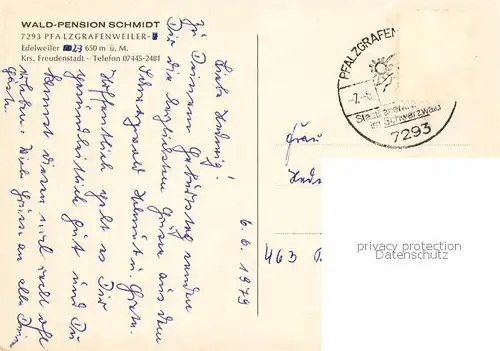 WALD-PENSION SCHMIDT
7293 PFALZGRAFENWEILER-
Edelweiler 23 650 m ü. M.
Krs. Freudenstadt · Telefon 07445-2481
6. 6. 1979
Liebe Hedwig!
Zu Deinem Geburtstag senden
Dir die herzlichsten Grüße aus dem
Schwarzwald Helmut u. Greta.
Hoffentlich geht es Dir
gesundheitlich gut und Du
kannst diesen mal recht oft
erleben. Viele Grüsse an alle Dein
Frau
Hed
463
PFALZGRAFEN
-7.-6.
Staatl. anerk
im Schwarzwald
7293
privacy protection
watermark